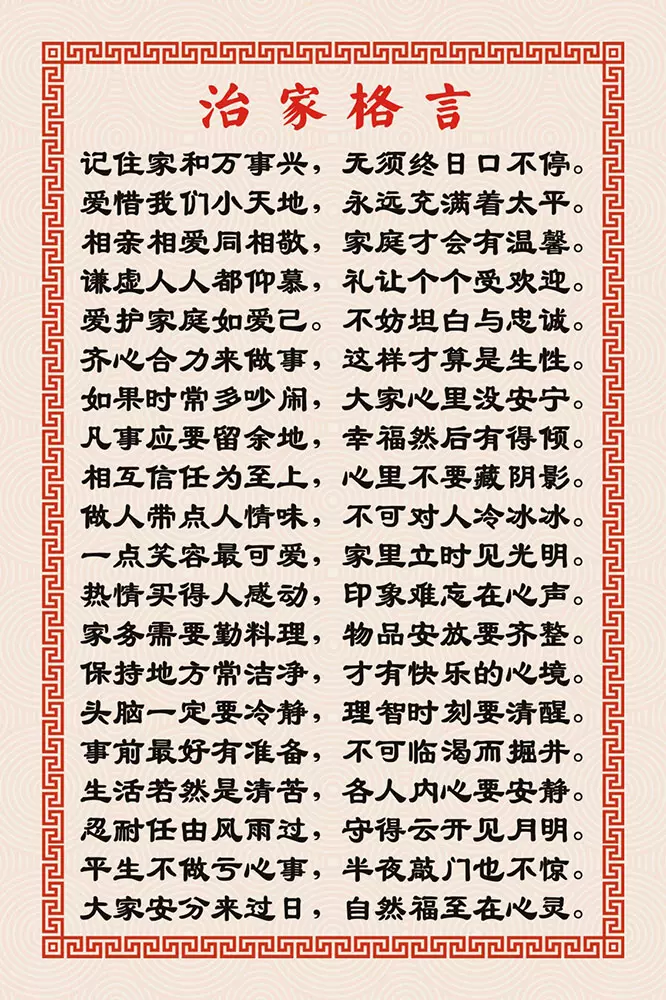 治家格言
记住家和万事兴，无须终日口不停。
爱惜我们小天地，永远充满着太平。
相亲相爱同相敬，家庭才会有温馨。
谦虚人人都仰慕，礼让个个受欢迎。
爱护家庭如爱己。不妨坦白与忠诚。
齐心合力来做事，这样才算是生性。
如果时常多吵闹，大家心里没安宁。
凡事应要留余地，幸福然后有得倾。
相互信任为至上，心里不要藏阴影。
做人带点人情味，不可对人冷冰冰。
一点笑容最可爱，家里立时见光明。
热情买得人感动，印象难忘在心声。
家务需要勤料理，物品安放要齐整。
保持地方常洁净，才有快乐的心境。
头脑一定要冷静，理智时刻要清醒。
事前最好有准备，不可临渴而掘井。
生活若然是清苦，各人内心要安静。
忍耐任由风雨过，守得云开见月明。
平生不做亏心事，半夜敲门也不惊。
大家安分来过日，自然福至在心灵。